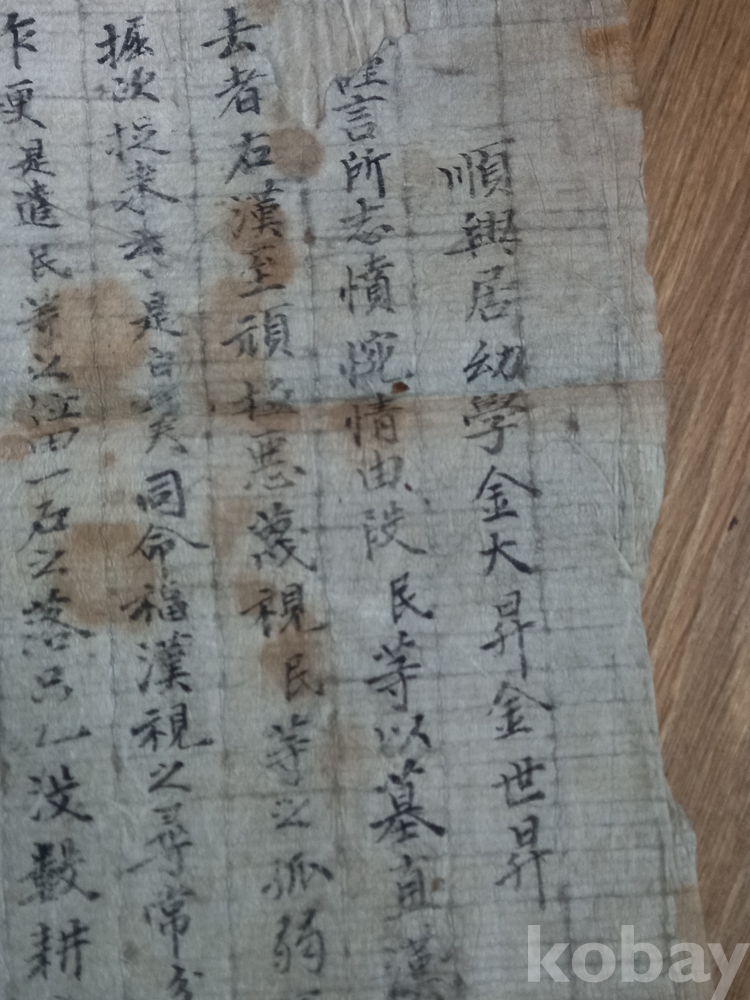 順興居幼學金大昇金世昇
言所志憤惋情由段民等以墓直漢
去者右漢至頑極惡蔑視民等之孤弱
掘次捉來是白矣同命福漢視之尋常
乍更是遣民等之位田一石之落只乙没數耕
kobay